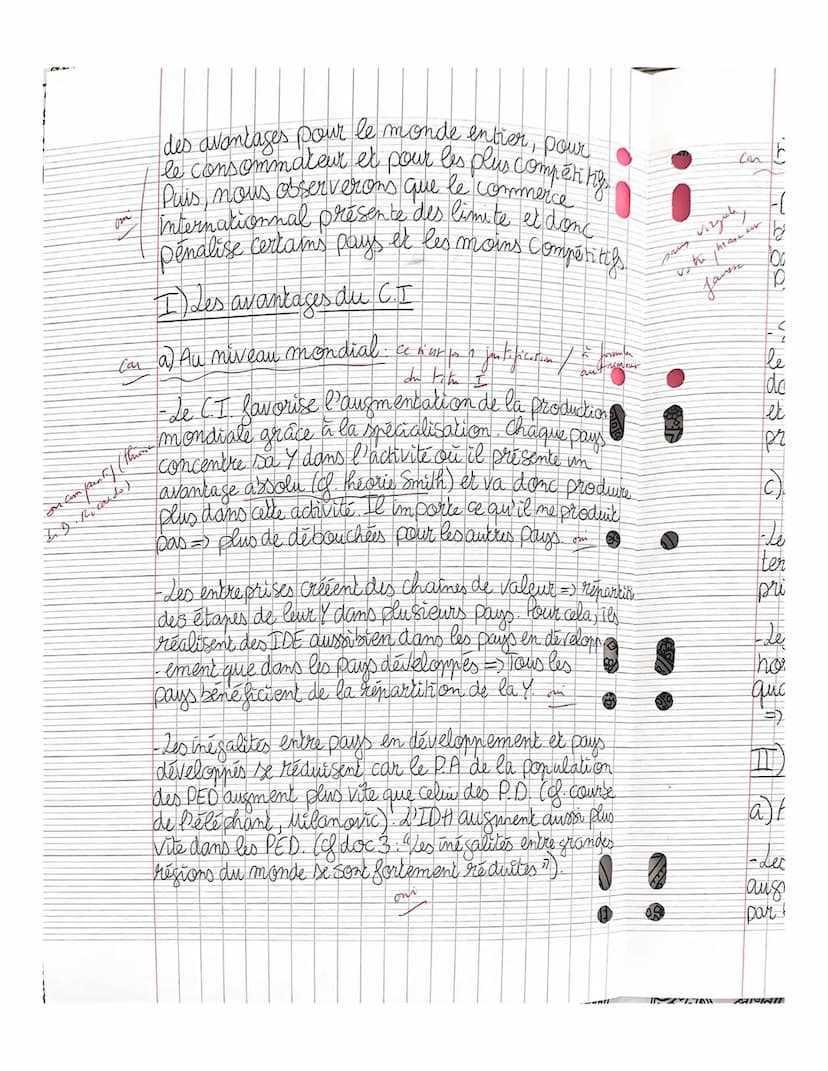 des avantages pour le monde entier, pour
le consommateur et pour les plus compétitifs.
Puis, nous observerons que le commerce
internationnal présente des limite et donc
oui
pénalise certains pays et les moins compétitifs.
I) Les avantages du C.I
car a) Au niveau mondial : ce n'est pas 1 justification / à formuler
du titre I
- Le C.I. favorise l'augmentation de la production
mondiale grâce à la spécialisation. Chaque pays
concentre sa Y dans l'activité où il présente un
ou comparatif (théorie
de D. Ricardo)
avantage absolu (cf théorie Smith) et va donc produire
plus dans cette activité. Il importe ce qu'il ne produit
pas => plus de débouchées pour les autres pays. oui
- Les entreprises créient des chaînes de valeur => répartition
des étapes de leur Y dans plusieurs pays. Pour cela, ils
réalisent des IDE aussi bien dans les pays en développ-
-ement que dans les pays développés => Tous les
pays bénéficient de la répartition de la Y. oui
- Les inégalités entre pays en développement et pays
développés se réduisent car le P.A de la population
des PED augment plus vite que celui des P.D. (cf. courbe
de l'éléphant, Milanovic). L'IDH augment aussi plus
vite dans les PED. (cf doc 3 : "Les inégalités entre grandes
régions du monde se sont fortement réduites").
oui
car
sans virgule,
c)
=>
II)
a)
- Les
par